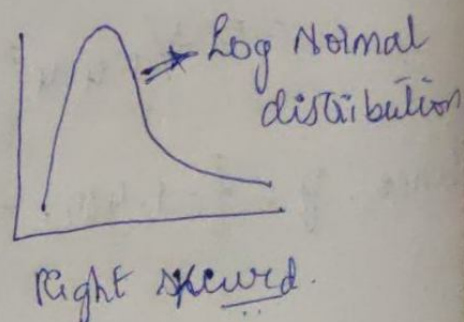 Log Normal
distribution
Right skewed.